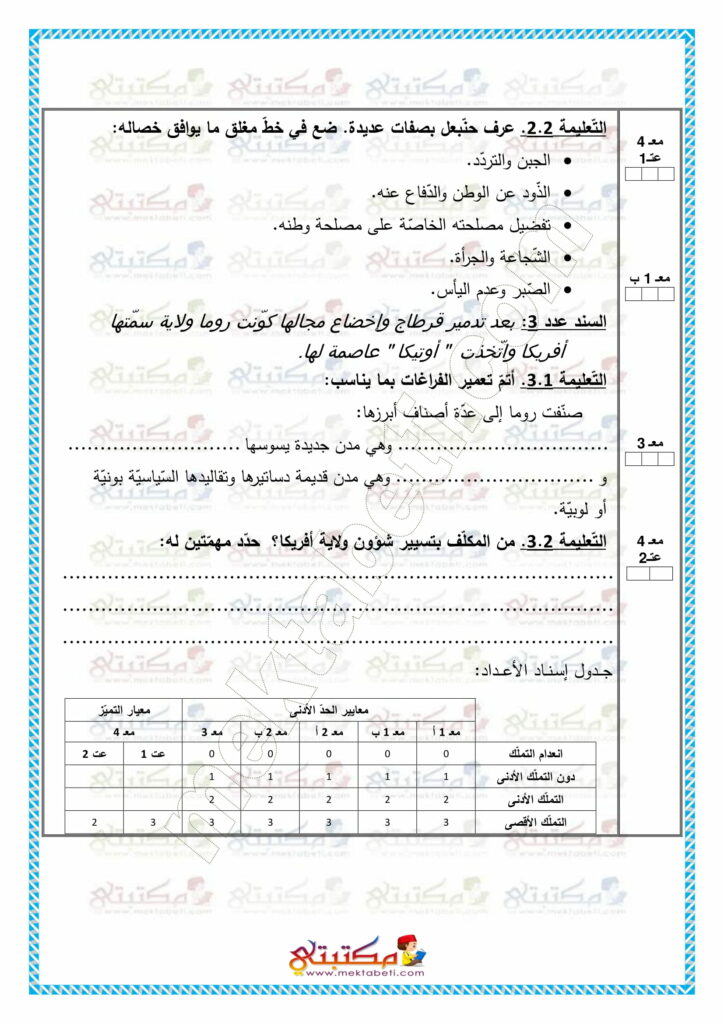 التّعليمة 2.2. عرف حنّبعل بصفات عديدة. ضع في خطّ مغلق ما يوافق خصاله:
معـ 4
عتـ1
• الجبن والتردّد.
• الذّود عن الوطن والدّفاع عنه.
• تفضيل مصلحته الخاصّة على مصلحة وطنه.
• الشّجاعة والجرأة.
معـ 1 ب
• الصّبر وعدم اليأس.
السند عدد 3: بعد تدمير قرطاج وإخضاع مجالها كوّنت روما ولاية سمّتها
أفريكا واتّخذت " أوتيكا " عاصمة لها.
التّعليمة 3.1. أتمّ تعمير الفراغات بما يناسب:
صنّفت روما إلى عدّة أصناف أبرزها:
معـ 3
................................ وهي مدن جديدة يسوسها ..........................
و .............................. وهي مدن قديمة دساتيرها وتقاليدها السّياسيّة بونيّة
أو لوبيّة.
معـ 4
عتـ2
التّعليمة 3.2. من المكلّف بتسيير شؤون ولاية أفريكا؟ حدّد مهمّتين له:
....................................................................................
....................................................................................
....................................................................................
جدول إسناد الأعداد:
معايير الحدّ الأدنى معيار التميّز
معـ 1 أ معـ 1 ب معـ 2 أ معـ 2 ب معـ 3 معـ 4
انعدام التملّك 0 0 0 0 0 عت 1 عت 2
دون التملّك الأدنى 1 1 1 1 1
التملّك الأدنى 2 2 2 2 2
التملّك الأقصى 3 3 3 3 3 3 2
mektabeti.com
مكتبتي
www.mektabeti.com